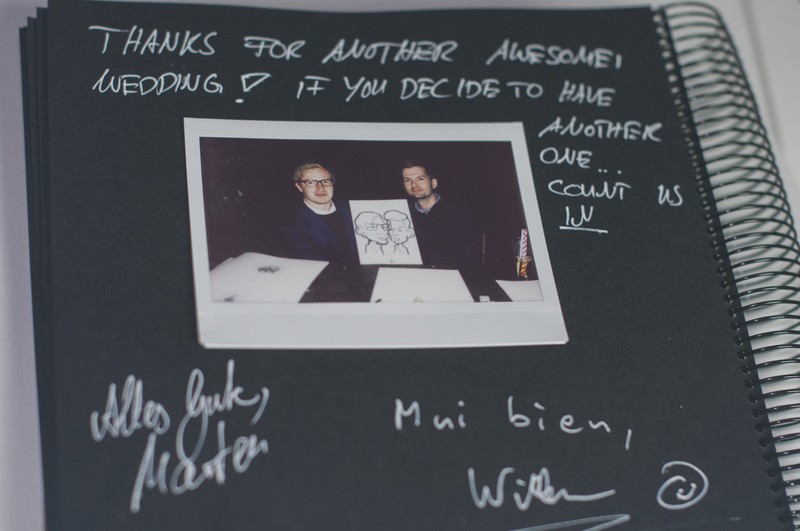 THANKS FOR ANOTHER AWESOME
WEDDING! IF YOU DECIDE TO HAVE
ANOTHER
ONE...
COUNT US
IN
Alles Gute,
Marten
Mui bien,